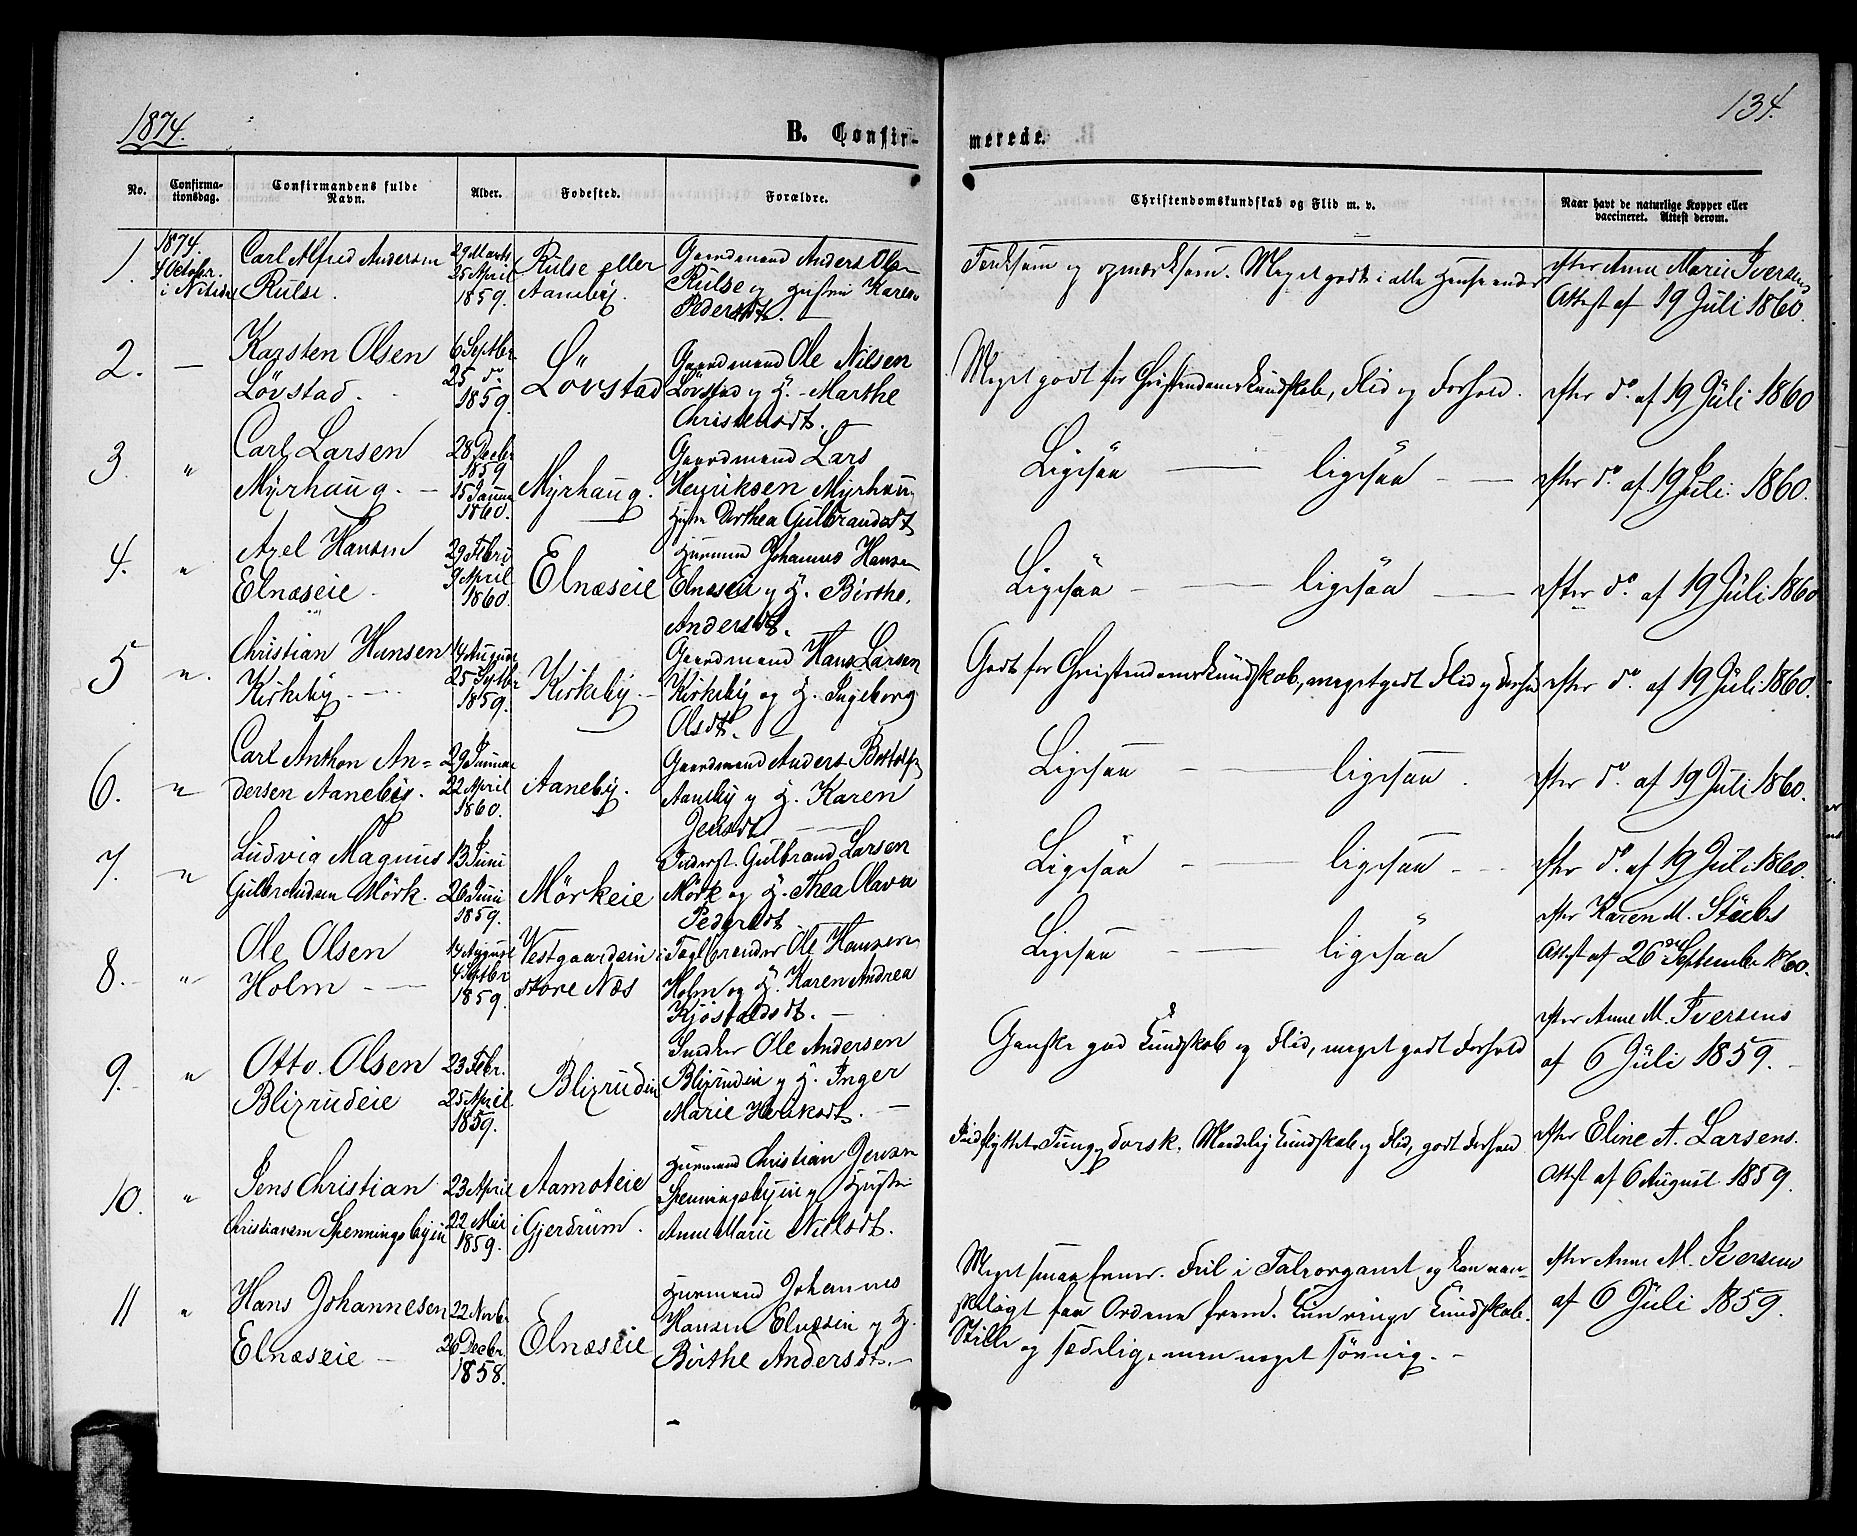 1874.
B. Confir-
merede.
134.
No.
Confirma-
tionsdag.
Confirmandens fulde
Navn.
Alder.
Fodested.
Forældre.
Christendomskundskab og Flid m. v.
Naar havt de naturlige Kopper eller
vaccineret. Attest derom.
1.
1874.
4 Octobr.
i Nitedal
Carl Alfred Andersen
Rulse.
29 Marts
25 April
1859.
Rulse eller
Aaneby.
Gaardmand Anders Olsen
Rulse og Hustru Karen
Pedersdt.
og opmærksom. Meget godt i alle Henseender
efter Anne Marie Iversens
Attest af 19 Juli 1860.
2.
—
Karsten Olsen
Lövstad.
6 Septbr.
25 do.
1859.
Lövstad
Gaardmand Ole Nilsen
Lövstad og H. Marthe
Christensdt.
Meget godt for Christendomskundskab, Flid og Forhold.
efter do. af 19 Juli 1860
3.
"
Carl Larsen
Myrhaug. —
28 Decbr
1859
15 Januar
1860.
Myrhaug.
Gaardmand Lars
Henriksen Myrhaug
Hustru Dorthea Gulbrandsdt
Ligesaa — ligesaa —
efter do. af 19 Juli 1860.
4.
"
Axel Hansen
Elnæseie.
29 Febru
9 April
1860.
Elnæseie
Huusmand Johannes Hansen
Elnæseie og H. Birthe
Andersdt.
Ligesaa — ligesaa —
efter do. af 19 Juli 1860
5
"
Christian Hansen
Kirkeby —
14 August
25 Septbr
1859.
Kirkeby. —
Gaardmand Hans Larsen
Kirkeby og H. Ingeborg
Olsdt.
Godt for Christendomskundskab, meget godt Flid og Forhold
efter do. af 19 Juli 1860.
6.
"
Carl Anthon An=
dersen Aaneby.
29 Januar
22 April
1860.
Aaneby.
Gaardmand Anders
Aaneby og H. Karen
Jensdt
Ligesaa — ligesaa.
efter do. af 19 Juli 1860.
7.
"
Ludvig Magnus
Gulbrandsen Mörk.
13 Juni
26 Juni
1859.
Mörkeie
Inderst. Gulbrand Larsen
Mörk og H. Thea Olava
Pedersdt
Ligesaa — ligesaa —
efter do. af 19 Juli 1860.
8.
"
Ole Olsen
Holm —
14 August
4 Septbr
1859.
Vestgaardseie i
store Næs
Teglbrænder Ole Hansen
Holm og H. Karen Andrea
Ligesaa — ligesaa
efter Karen M.
Attest af 26 September 1860.
9.
"
Otto Olsen
Blixrudeie
23 Febr.
25 April
1859.
Blixrudeie
Snedker Ole Andersen
Blixrudeie og H. Inger
Marie Henriksdt. —
Ganske god Kundskab og Flid, meget godt Forhold
efter Anne M. Iversens
af 6 Juli 1859. —
10.
"
Jens Christian
Christiansen Spenningsbyeie
23 April
22 Mai
1859.
Aamoteie
i Gjerdrum.
Huusmand Christian Jensen
Spenningsbyeie og Hustru
Anne Marie Nilsdt.
Indflyttet. Tung og dorsk. Maadelig Kundskab og Flid, godt Forhold
efter Eline A. Larsens.
Attest af 6 August 1859.
11
"
Hans Johannesen
Elnæseie —
22 Novbr
26 Decbr
1858.
Elnæseie
Huusmand Johannes
Hansen Elnæseie og H.
Birthe Andersdt. —
Meget smaa Evner. Feil i Taleorganet og kan van-
skeligt faa Ordene frem. Kun ringe Kundskab.
Stille og sædelig, men noget
efter Anne M. Iversens
af 6 Juli 1859.